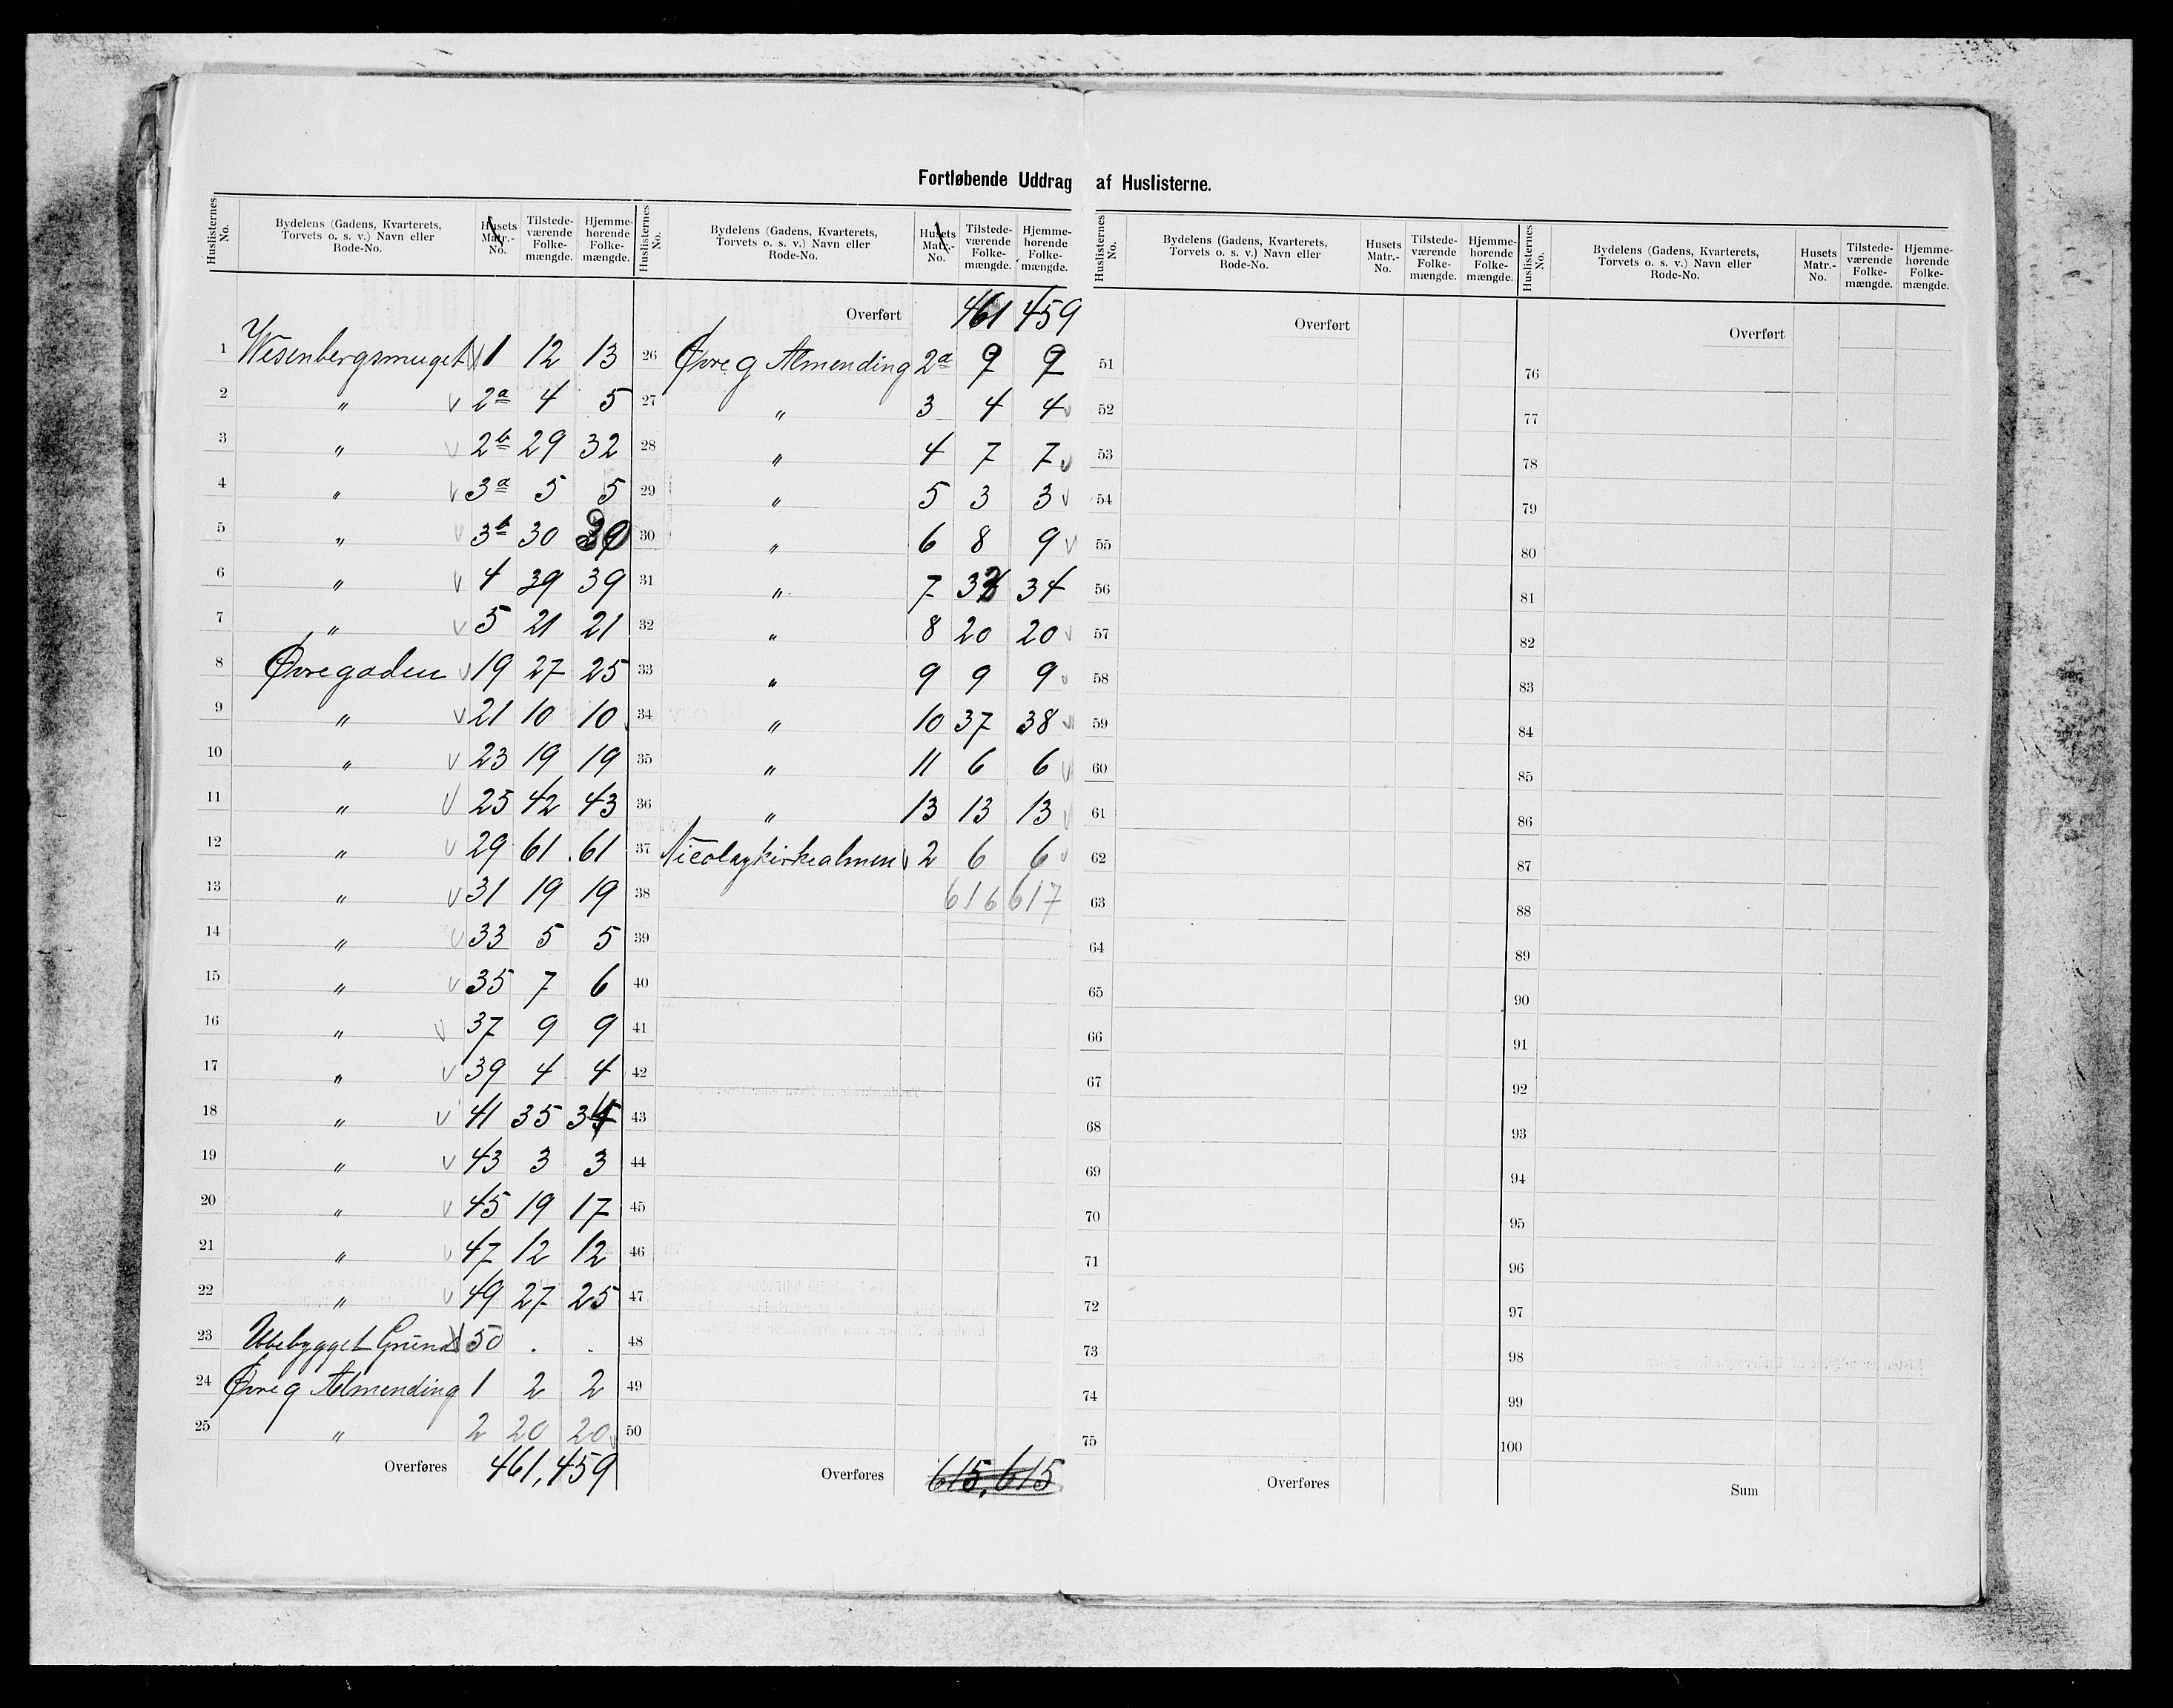 Fortløbende Uddrag af Huslisterne.
Huslisternes No. Bydelens (Gadens, Kvarterets, Torvets o. s. v.) Navn eller Rode-No. Husets Matr.-No. Tilstede-værende Folke-mængde. Hjemme-hørende Folke-mængde.
1 Wesenbergsmuget 1 12 13
2 " 2a 4 5
3 " 2b 29 32
4 " 3a 5 5
5 " 3b 30
6 " 4 39 39
7 " 5 21 21
8 Øvregaden 19 27 25
9 " 21 10 10
10 " 23 19 19
11 " 25 42 43
12 " 29 61 61
13 " 31 19 19
14 " 33 5 5
15 " 35 7 6
16 " 37 9 9
17 " 39 4 4
18 " 41 35
19 " 43 3 3
20 " 45 19 17
21 " 47 12 12
22 " 49 27 25
23 Ubebygget Grund 50 . .
24 Øvreg Almending 1 2 2
25 " 2 20 20
Overføres 461, 459
Huslisternes No. Bydelens (Gadens, Kvarterets, Torvets o. s. v.) Navn eller Rode-No. Husets Matr.-No. Tilstede-værende Folke-mængde. Hjemme-hørende Folke-mængde.
Overført 461 459
26 Øvreg Almending 2a 9 9
27 " 3 4 4
28 " 4 7 7
29 " 5 3 3
30 " 6 8 9
31 " 7 34
32 " 8 20 20
33 " 9 9 9
34 " 10 37 38
35 " 11 6 6
36 " 13 13 13
37 Nicolaykirkealmen 2 6 6
38 616 617
39
40
41
42
43
44
45
46
47
48
49
50
Overføres 615, 615
Huslisternes No. Bydelens (Gadens, Kvarterets, Torvets o. s. v.) Navn eller Rode-No. Husets Matr.-No. Tilstede-værende Folke-mængde. Hjemme-hørende Folke-mængde.
Overført
51
52
53
54
55
56
57
58
59
60
61
62
63
64
65
66
67
68
69
70
71
72
73
74
75
Overføres
Huslisternes No. Bydelens (Gadens, Kvarterets, Torvets o. s. v.) Navn eller Rode-No. Husets Matr.-No. Tilstede-værende Folke-mængde. Hjemme-hørende Folke-mængde.
Overført
76
77
78
79
80
81
82
83
84
85
86
87
88
89
90
91
92
93
94
95
96
97
98
99
100
Sum